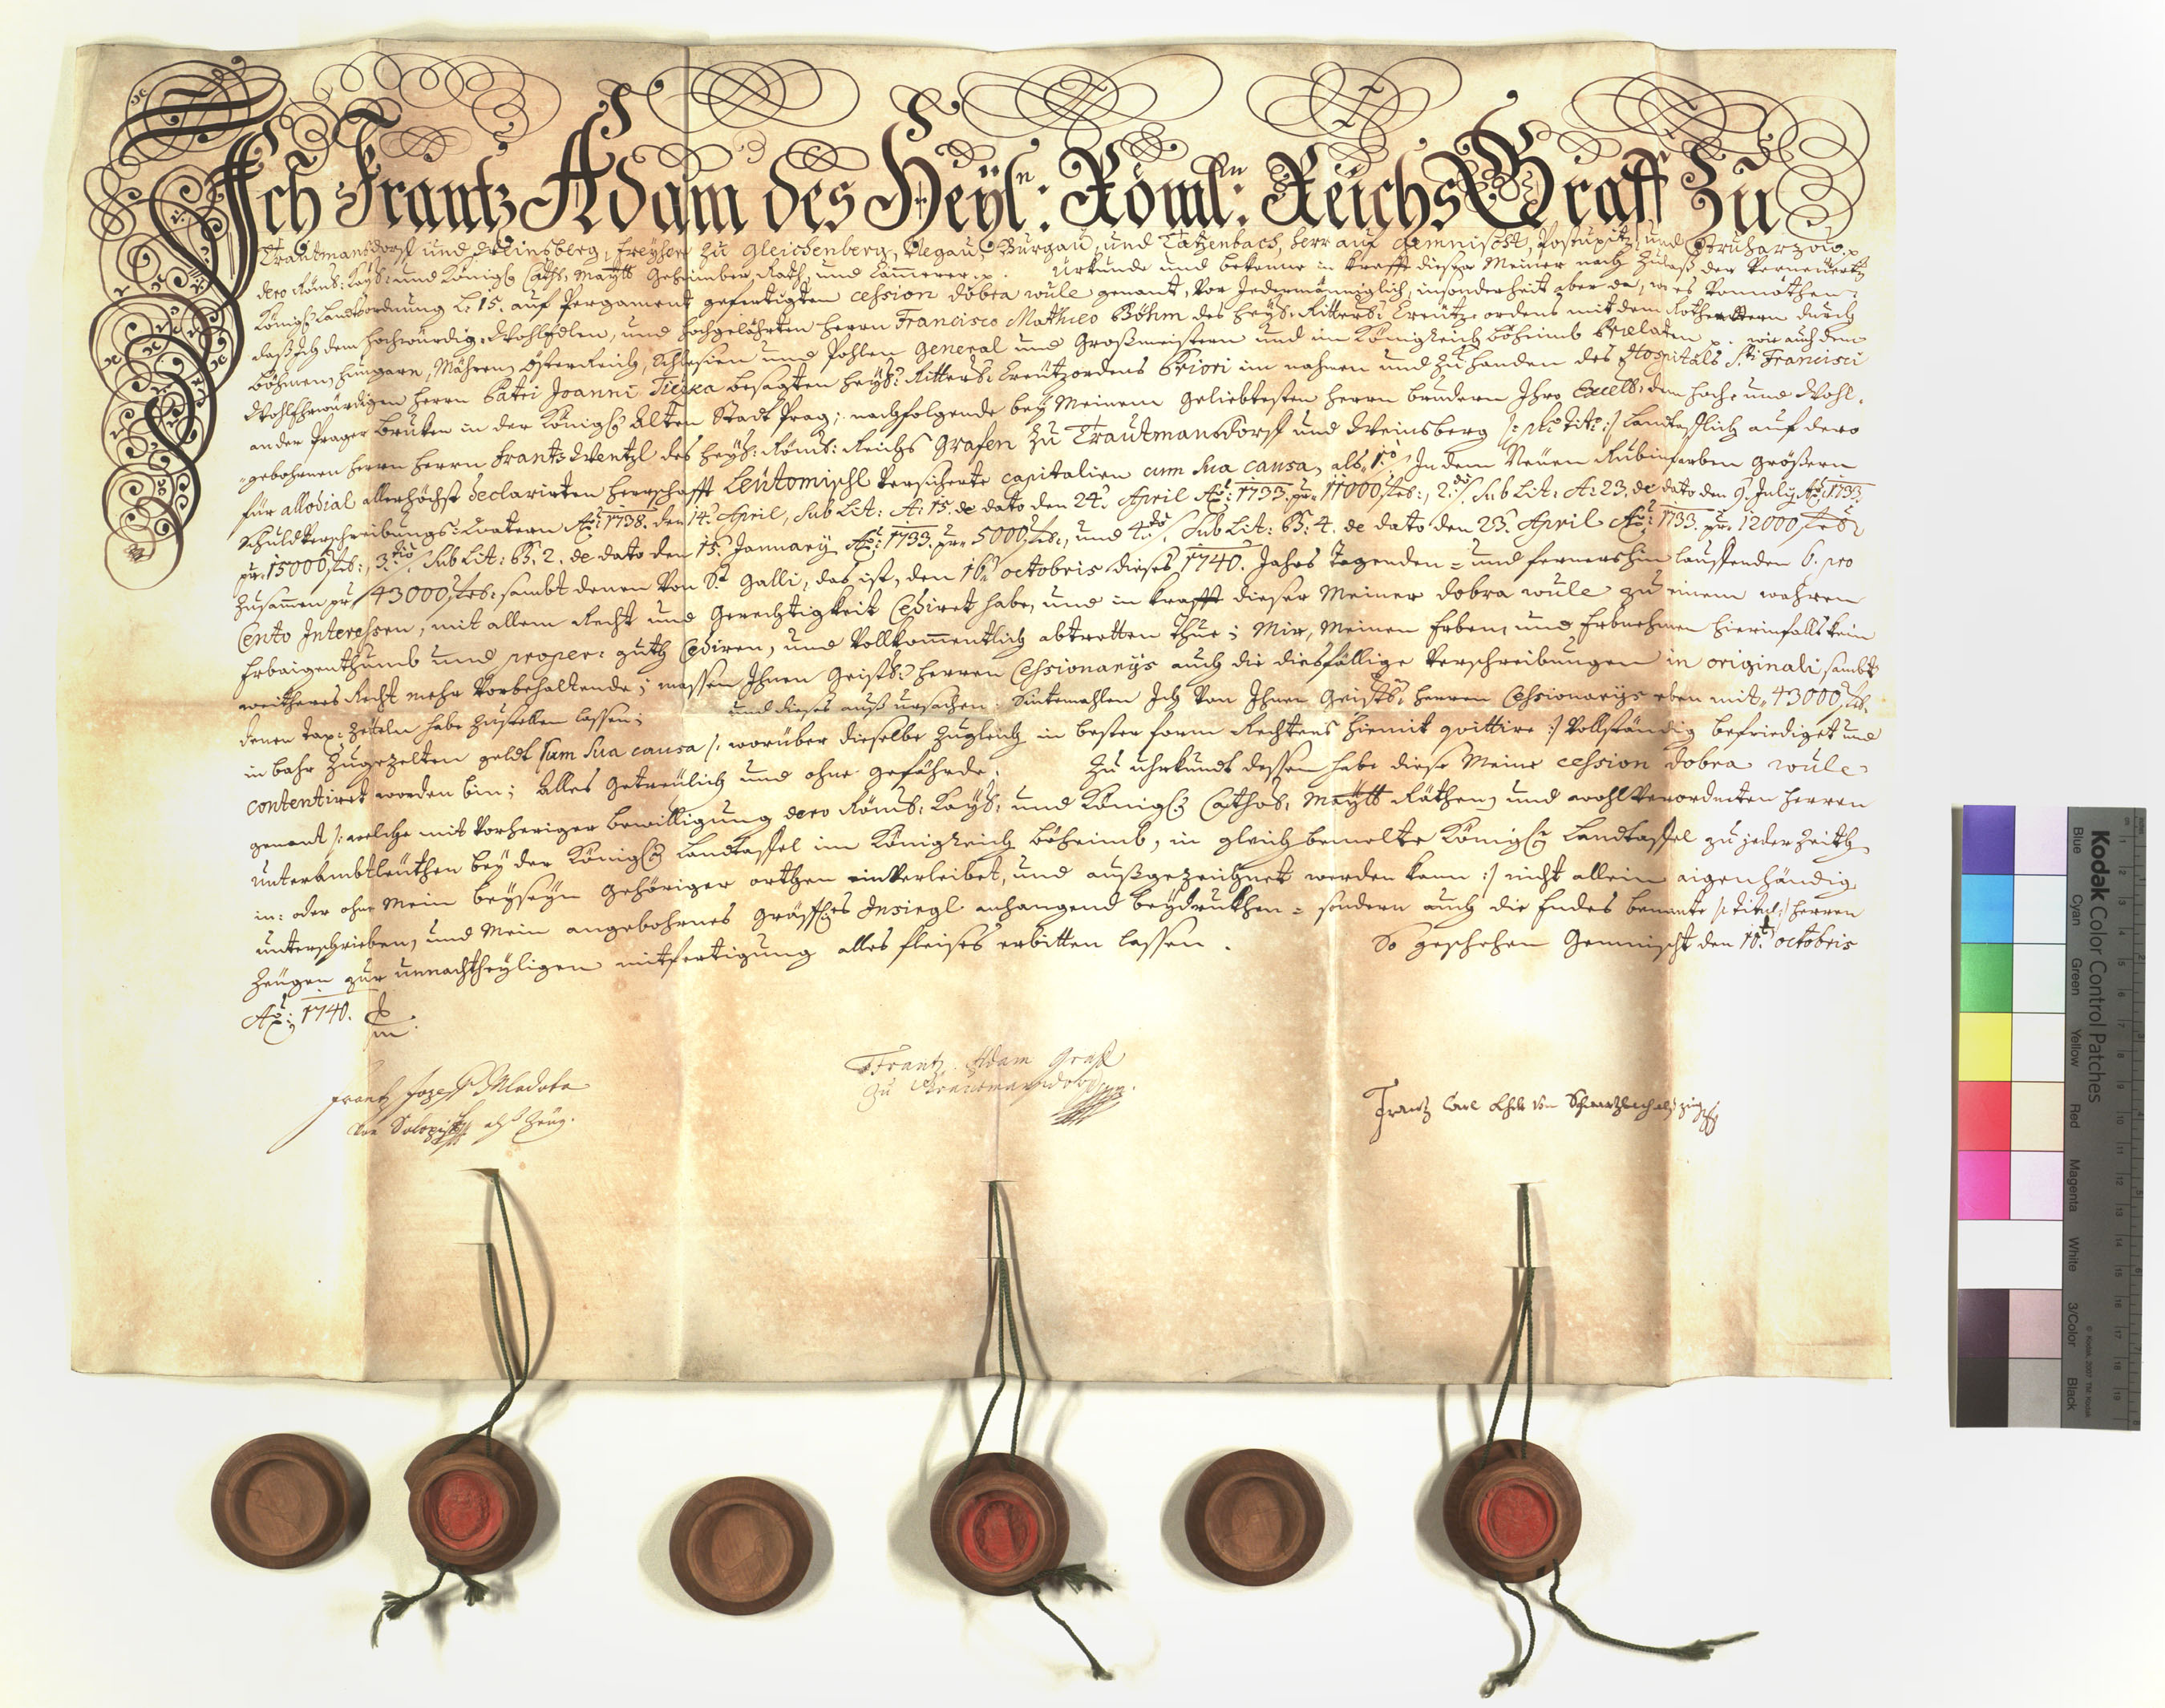 Ich Frantz Adam des Heyl:n Röml:n Reichs Graff Zu
Trautmansdorff und Weinsberg, Freyherr zu Gleichenberg, Negau, Burgau, und Tatzenbach, Herr auf Gemnischt, Postupitz, und Struharzow. p
dero Röm: Kayl: und Königl: Cath: Maytt: Geheimber Rath, und Cammerer. p. Urkunde und bekenne in krafft dieser Meiner nach Zulaß der Verneuerten
Königl: Landtsordnung L: 15. auf Pergament gefertigten cession dobra wule genant, vor Jedermänniglich, insonderheit aber da, wo es Vonnöthen:
daß Ich dem hochwürdig, Wohledlen, und hochgelährten Herrn Francisco Mathieo Böhm des heyl: Ritterl: Creützordens mit dem Rothen Stern durch
Böhmen, Hungarn, Mähren, Österreich, Schlesien und Pohlen General und Großmeistern und im Königreich Böheimb Prælaten p. wie auch dem
Wohlehrwürdigen Herrn Patri Joanni besagten heyl: Ritterl: Creützordens Priori im nahmen und zu handen des Hospitals Sti Francisci
an der Prager Brucken in der Königl: Alten Stadt Prag; nachfolgende bey Meinem geliebtesten Herrn brudern Ihro Excell: dem hoch: und Wohl-
gebohrnen Herrn Herrn Frantz Wentzl des heyl: Röml: Reichs Grafen zu Trautmansdorff und Weinsberg /: pl: tit: :/ Landtafflich auf dero
für allodial allerhöchst declarirten Herrschafft Leutomischl versicherte capitalien cum sua causa, alß 1mo/. In dem Neüen Rubinfarben größern
Schuldverschreibungs: Quatern Ao: 1738. den 14. April, sub Lit: A: 15. de dato den 24. April Ao: 1733. pr. 11000 fl:, 2do/. sub Lit: A: 23. de dato den 9. July Ao: 1733.
pr. 15000 fl:, 3tio/. sub Lit: B: 2. de dato den 15. January Ao: 1733. pr. 5000 fl:, und 4to/. sub Lit: B: 4. de dato den 23. April Ao: 1733. pr. 12000 fl:
Zusamen pr. 43000 fl: sambt denen von St. Galli, das ist, den 16. octobris dieses 1740. Jahrs tragenden- und fernershin lauffenden 6. pro
Cento Interessen, mit allem Recht und Gerechtigkeit Cediret habe, und in krafft dieser Meiner dobra wule zu einem wahren
Erbaigenthumb und proper: guth Cediren, und Vollkomentlich abtretten thue; Mir, Meinen Erben, und Erbnehmen hierinfalls kein
weitheres Recht mehr Vorbehaltende; massen Ihnen Geistl: Herren Cessionarys auch die diesfällige Verschreibungen in originali sambt
denen tax: Zetteln habe Zustellen lassen; und dieses auß ursachen: Sintemahlen Ich von Ihnen Geistl: Herren Cessionarys eben mit 43000 fl:
in bahr Zugezelten geldt cum sua causa /: worüber dieselbe Zugleich in bester form Rechtens hiemit quittire :/ Vollständig befriediget und
contentiret worden bin; alles Getreülich und ohne gefährde; Zu uhrkundt dessen habe diese Meine cession dobra wule
genant /: welche mit Vorheriger bewilligung dero Röml: Kayl: und Königl: Cathol: Maytt Räthen, und wohlverordneten Herren
unterambtleüthen bey der Königl: Landtaffel im Königreich Böheimb, in gleich bemelte Königl: Landtaffel zu jeder Zeith
in: oder ohne Mein beyseyn gehöriger orthen einverleibet, und außgezeichnet werden kann :/ nicht allein aigenhändig
unterschrieben, und Mein angebohrnes Gräffliches Insiegl anhangend beydruckhen- sondern auch die Endes benante /: titul: :/ Herren
Zeügen zur unnachtheyligen mitfertigung alles fleises erbitten lassen. So geschehen Gemnischt den 18. octobris
Ao: 1740.
Frantz Jozeff Mladota
von Solopisk alß Zeüg.
Frantz Adam Graff
zu Trautmansdorff
Frantz Carl von alß zeüg
Kodak Color Control Patches
Blue Cyan Green Yellow Red Magenta White 3/Color Black
© Kodak, 2007 TM: Kodak